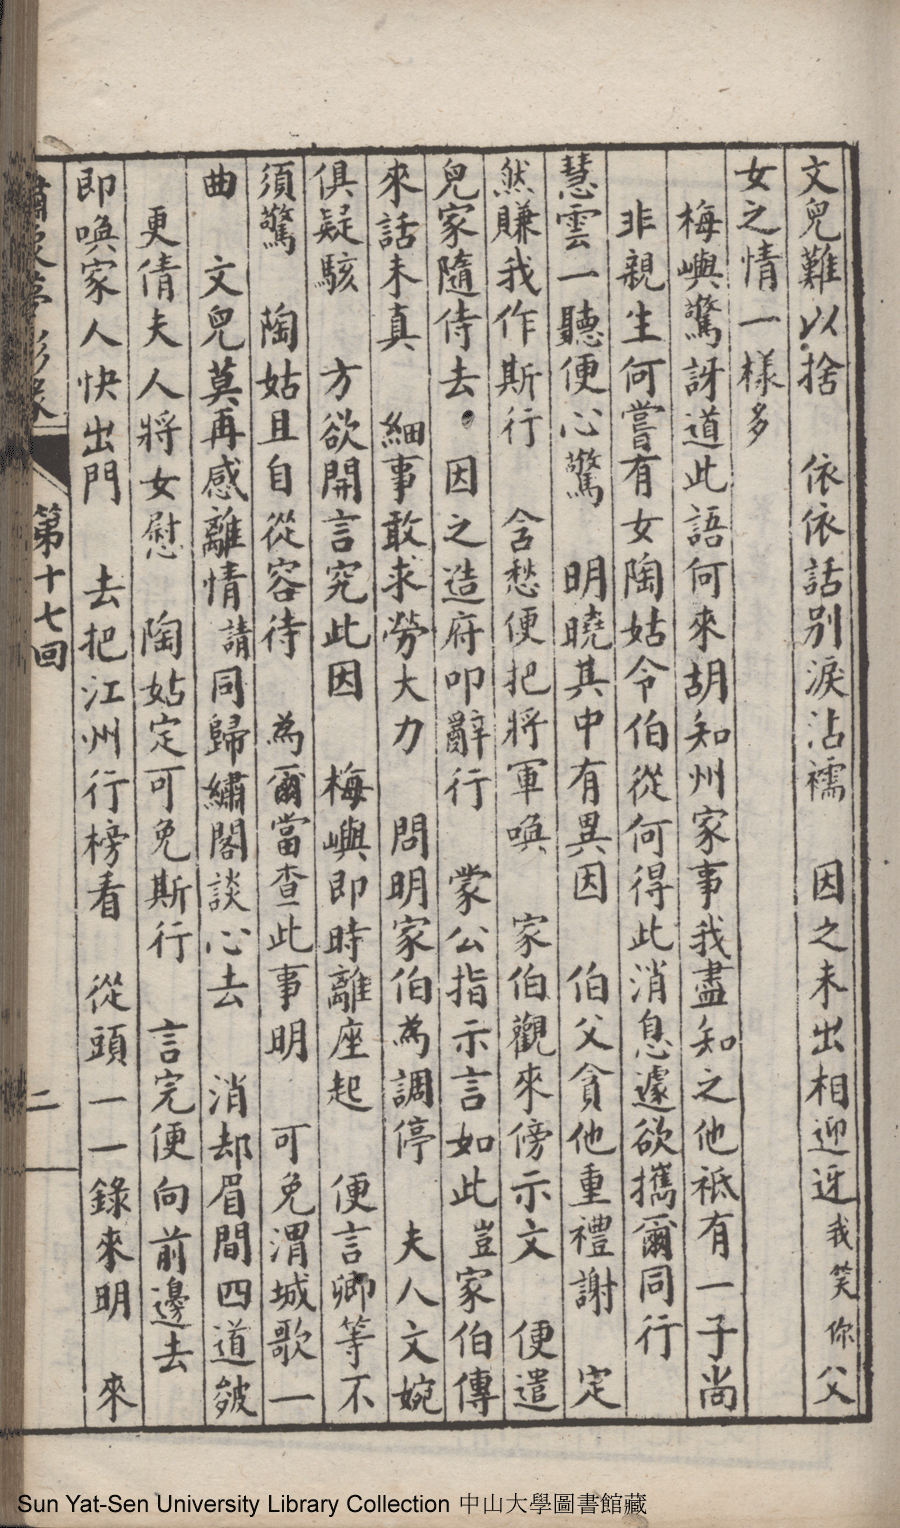 文兒難以捨 依依話別淚沾襦 因之未出相迎迓 我笑你父
女之情一樣多
梅嶼驚訝道此語何來胡知州家事我盡知之他袛有一子尚
非親生何嘗有女陶姑令伯從何得此消息遽欲攜爾同行
慧雲一聽便心驚 明曉其中有異因 伯父貪他重禮謝 定
然賺我作斯行 含愁便把將軍喚 家伯觀來傍示文 便遣
兒家隨侍去 因之造府叩辭行 蒙公指示言如此 豈家伯傳
來話未真 細事敢求勞大力 問明家伯為調停 夫人文婉
俱疑駭 方欲開言究此因 梅嶼即時離座起 便言卿等不
須驚 陶姑且自從容待 為爾當查此事明 可免渭城歌一
曲 文兒莫再感離情 請同歸繡閣談心去 消却眉間四道皴
更倩夫人將女慰 陶姑定可免斯行 言完便向前邊去
即喚家人快出門 去把江州行榜看 從頭一一錄來明 來
第十七回
二
Sun Yat-Sen University Library Collection 中山大學圖書館藏